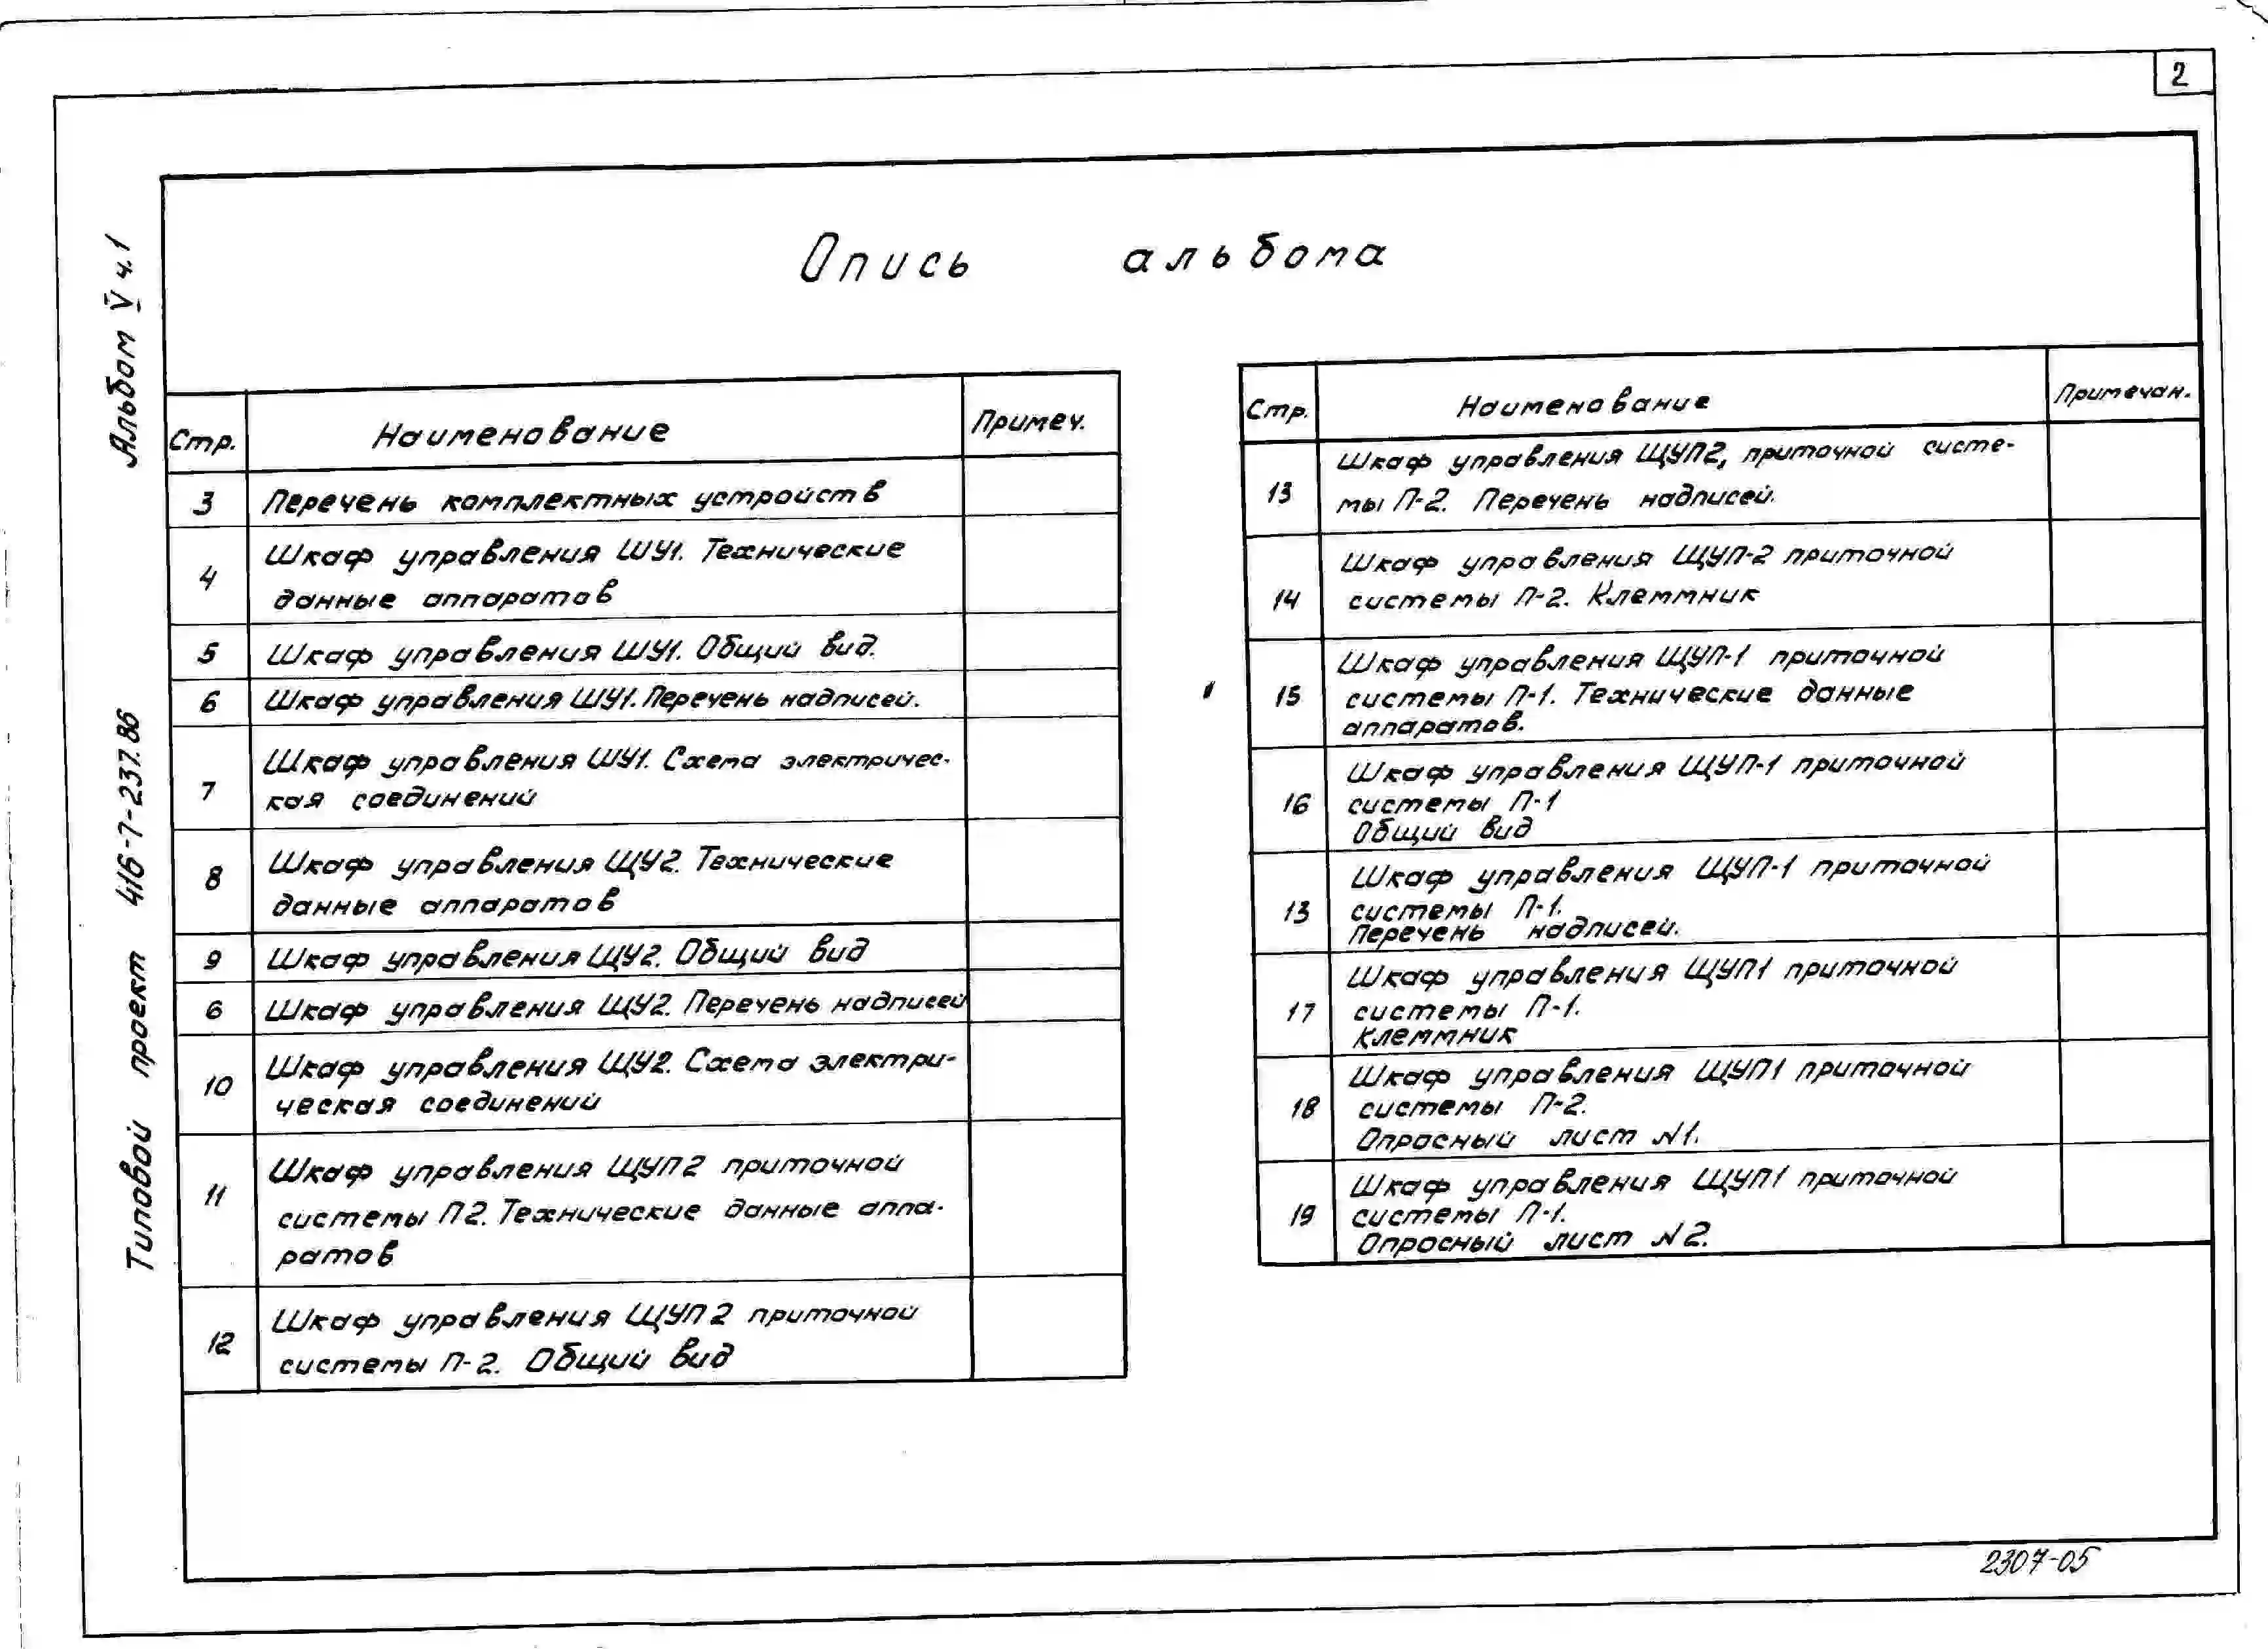 2
Опись альбома
Альбом V ч.1
Типовой проект 416-7-237.86
Стр. Наименование Примеч.
3 Перечень комплектных устройств
Шкаф управления ШУ1. Технические
4
данные аппаратов
5 Шкаф управления ШУ1. Общий вид.
6 Шкаф управления ШУ1. Перечень надписей.
Шкаф управления ШУ1. Схема электричес-
7
кая соединений
Шкаф управления ЩУ2. Технические
8
данные аппаратов
9 Шкаф управления ЩУ2. Общий вид
6 Шкаф управления ЩУ2. Перечень надписей
Шкаф управления ЩУ2. Схема электри-
10
ческая соединений
Шкаф управления ЩУП2 приточной
11
системы П2. Технические данные аппа-
ратов
Шкаф управления ЩУП2 приточной
12
системы П-2. Общий вид
Стр. Наименование Примечан.
Шкаф управления ЩУП2, приточной систе-
13
мы П-2. Перечень надписей.
Шкаф управления ЩУП-2 приточной
14
системы П-2. Клеммник
Шкаф управления ЩУП-1 приточной
15
системы П-1. Технические данные
аппаратов.
Шкаф управления ЩУП-1 приточной
16
системы П-1
Общий вид
Шкаф управления ЩУП-1 приточной
13
системы П-1.
Перечень надписей.
Шкаф управления ЩУП1 приточной
17
системы П-1.
Клеммник
Шкаф управления ЩУП1 приточной
18
системы П-2.
Опросный лист N1.
Шкаф управления ЩУП1 приточной
19
системы П-1.
Опросный лист N2.
2307-05